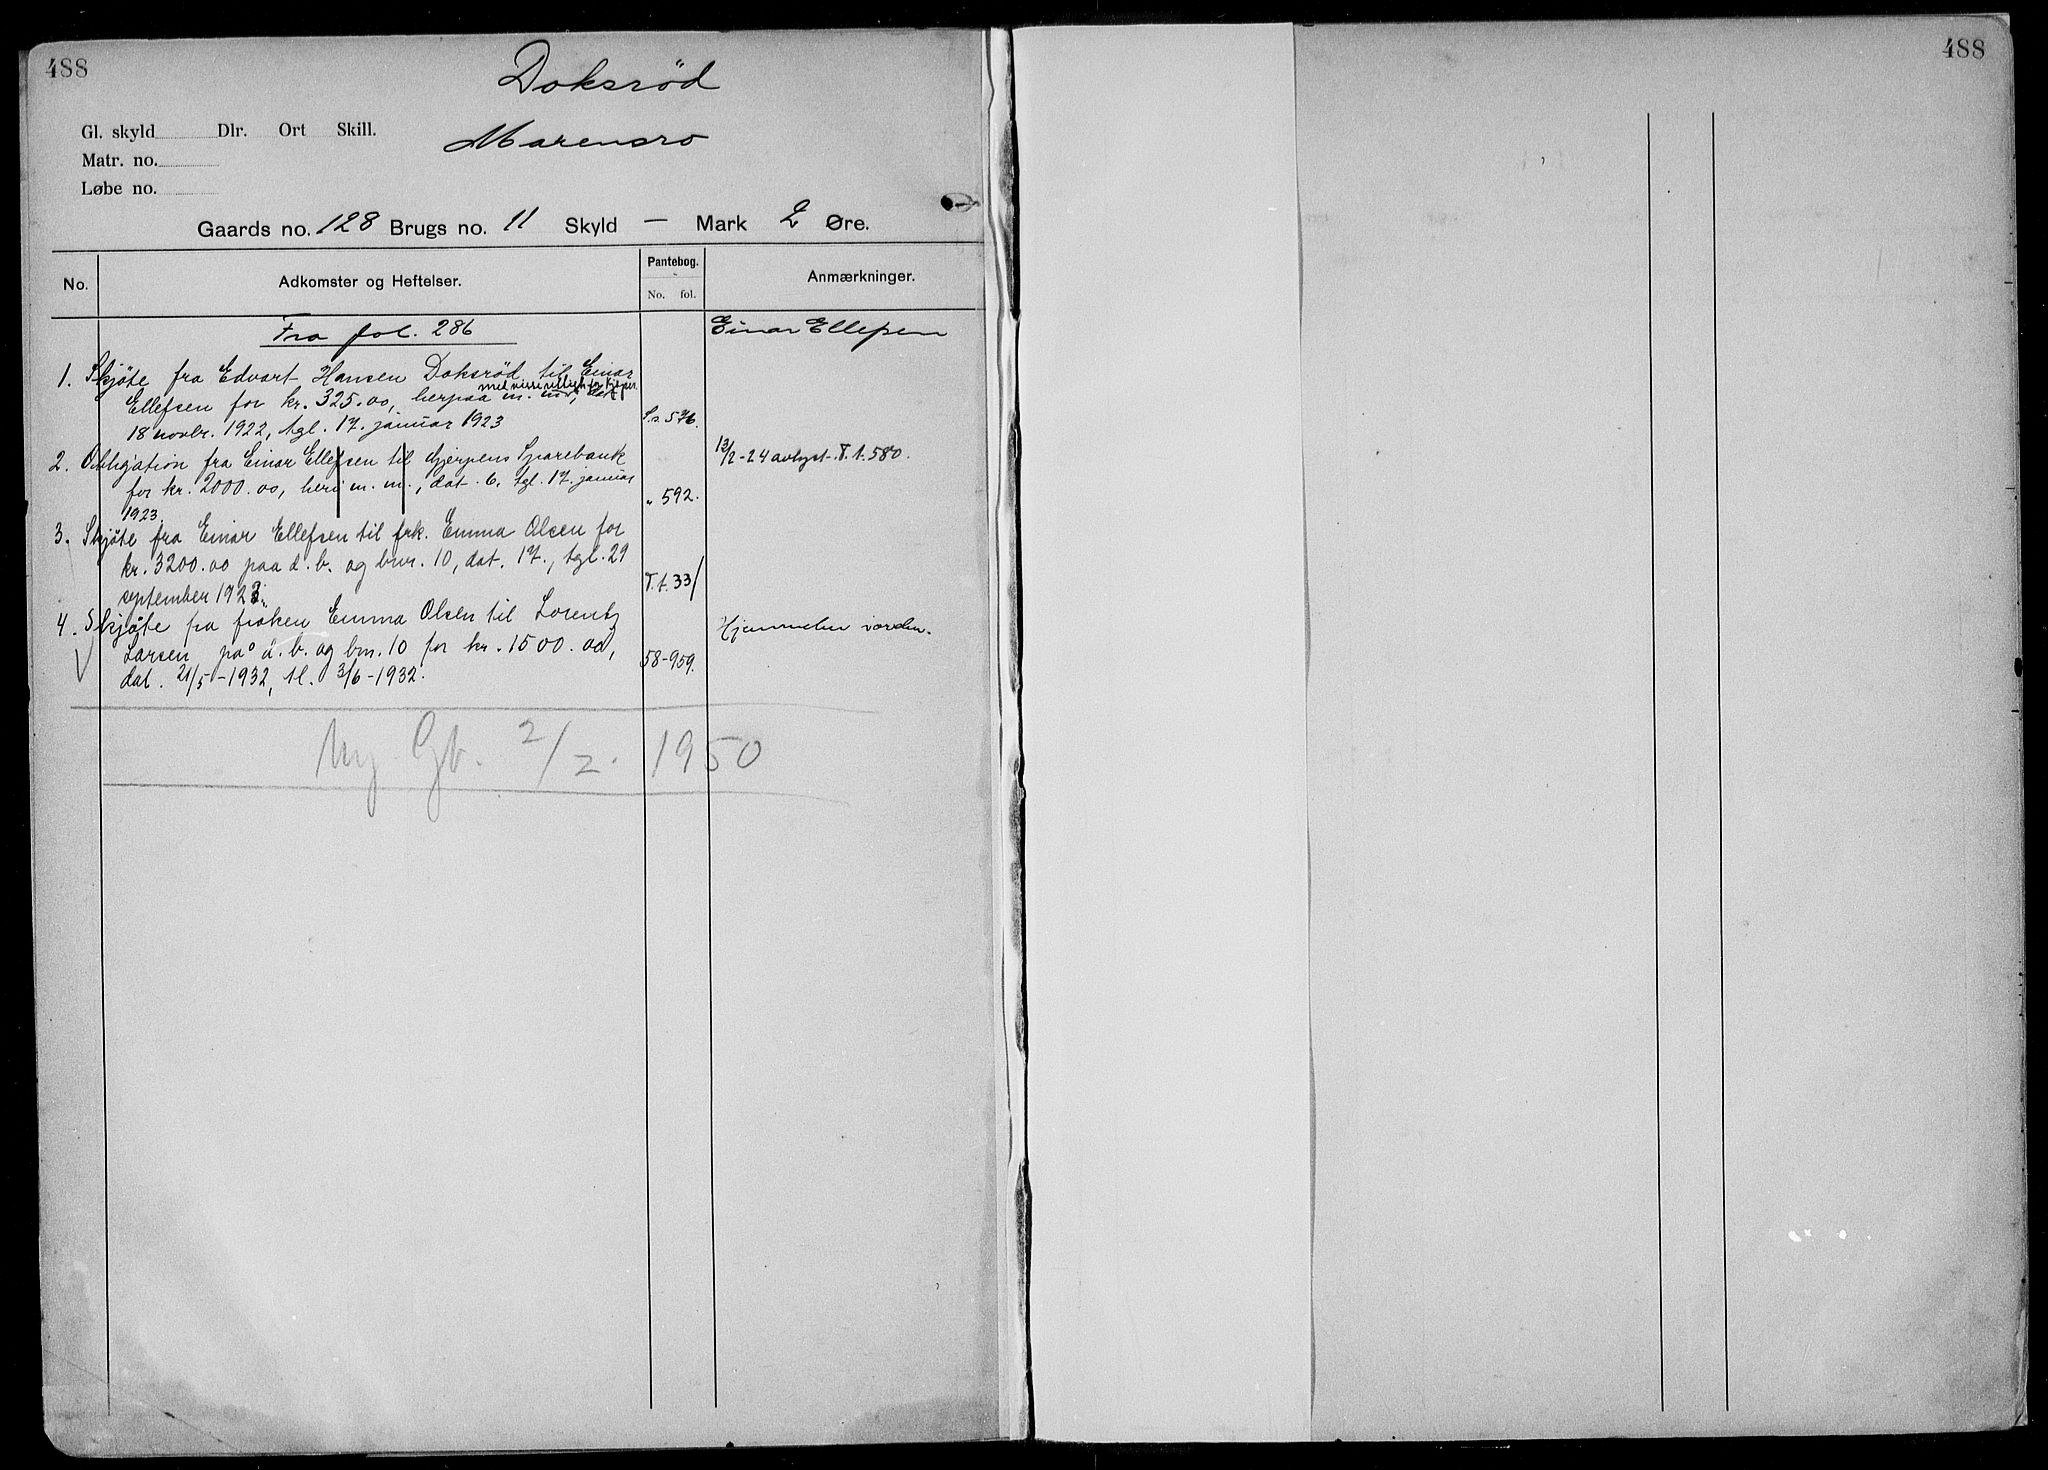 488
Doksrød
Gl. skyld Dlr. Ort Skill.
Marensro
Matr. no.
Løbe no.
Gaards no. 128 Brugs no. 11 Skyld — Mark 2 Øre.
No. Adkomster og Heftelser. Pantebog. No. fol. Anmærkninger.
Fra fol. 286 Einar Ellefsen
1. Skjøte fra Edvart Hansen Doksrød til Einar
Ellefsen for kr. 325.00, herpaa m. m.,
18 novbr. 1922, tgl. 17. januar 1923 S.s. 576.
2. Obligation fra Einar Ellefsen til Gjerpens Sparebank 13/2-24 avlyst. T.1.580.
for kr. 2000.00, heri m. m., dat. 6. tgl. 17. januar
1923 " 592.
3. Skjøte fra Einar Ellefsen til frk. Emma Olsen for
kr. 3200.00 paa d. b. og bnr. 10, dat. 17., tgl. 29
september 1923. T.1.331
4. Skjøte fra frøken Emma Olsen til Lorentz Hjemmelen i orden.
Larsen på d. b. og bnr. 10 for kr. 1500.00,
dat. 21/5-1932, tl. 3/6-1932. 58-959.
Ny Gb. 2/2. 1950
488